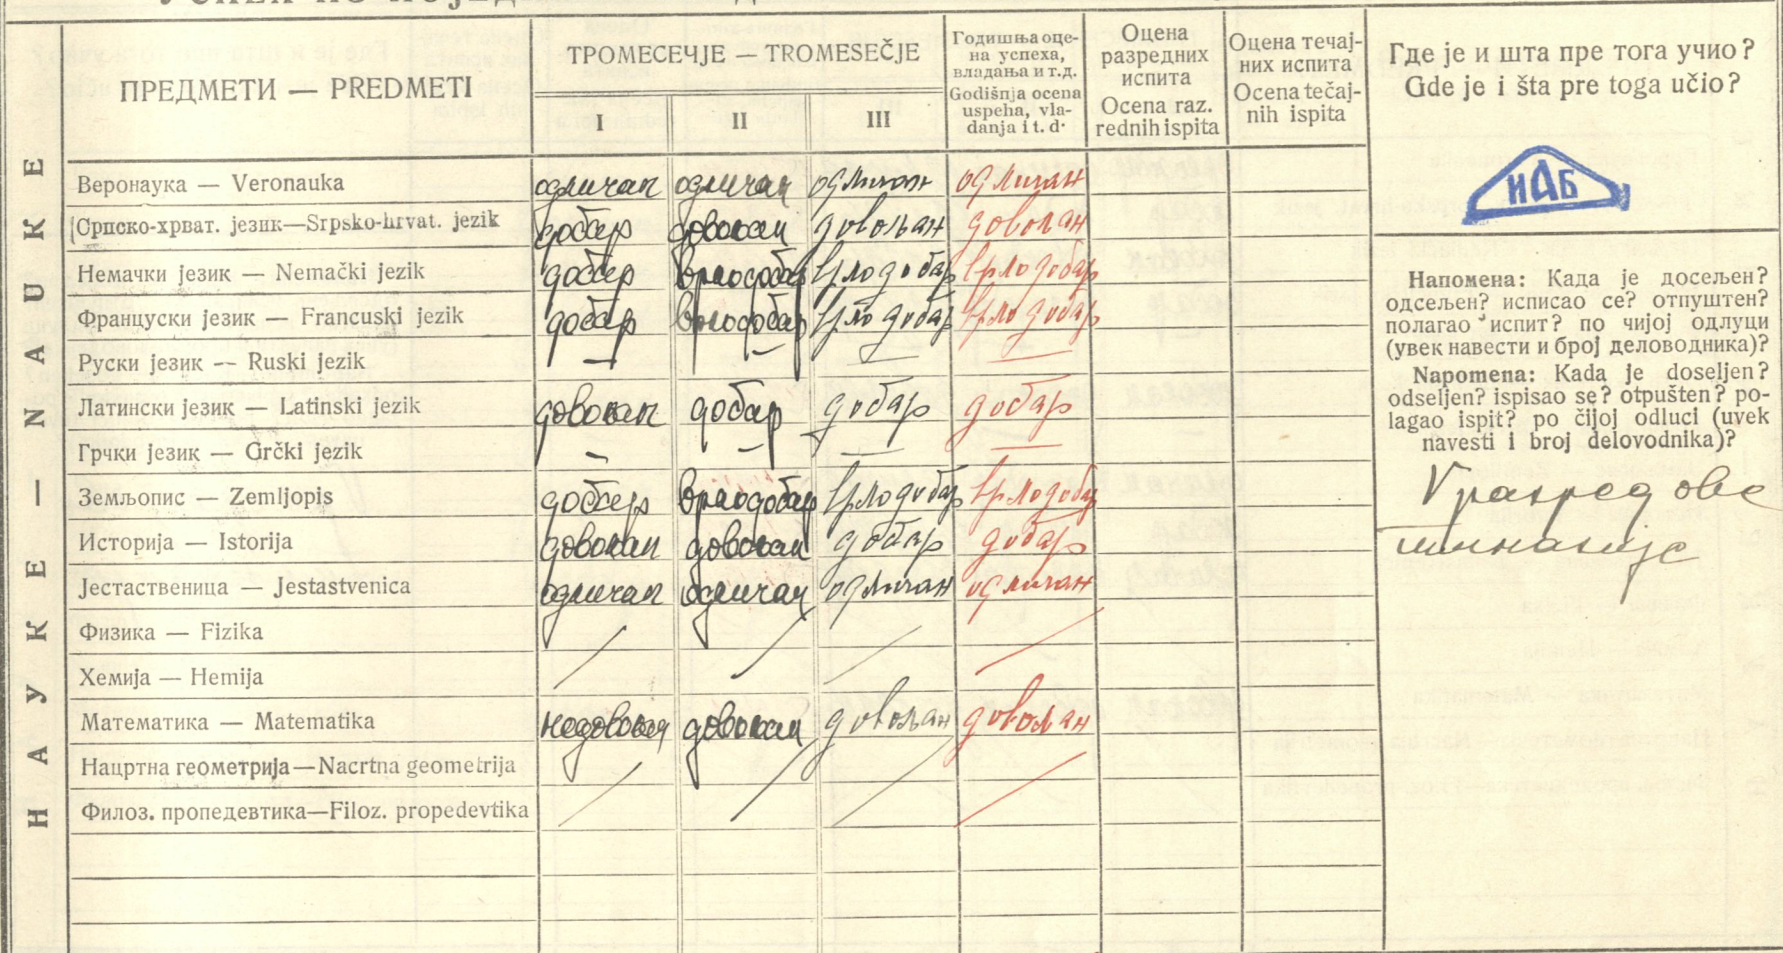 ПРЕДМЕТИ — PREDMETI
ТРОМЕСЕЧЈЕ — TROMESEČJE
I II III
Годишња оце-
на успеха,
владања и т.д.
Godišnja ocena
uspeha, vla-
danja i t. d.
Оцена
разредних
испита
Ocena raz.
rednih ispita
Оцена течај-
них испита
Ocena tečaj-
nih ispita
Где је и шта пре тога учио?
Gde je i šta pre toga učio?
НАУКЕ — NAUKE
Веронаука — Veronauka одличан одличан одличан одличан
Српско-хрват. језик—Srpsko-hrvat. jezik добар довољан довољан довољан
Немачки језик — Nemački jezik добар врлодобар врло добар врло добар
Француски језик — Francuski jezik добар врлодобар врло добар врло добар
Руски језик — Ruski jezik — — — —
Латински језик — Latinski jezik довољан добар добар добар
Грчки језик — Grčki jezik — — — —
Земљопис — Zemljopis добар врлодобар врло добар врло добар
Историја — Istorija довољан довољан добар добар
Јестаственица — Jestastvenica одличан одличан одличан одличан
Физика — Fizika
Хемија — Hemija
Математика — Matematika недовољан довољан довољан довољан
Нацртна геометрија—Nacrtna geometrija
Филоз. пропедевтика—Filoz. propedevtika
ИАБ
Напомена: Када је досељен?
одсељен? исписао се? отпуштен?
полагао испит? по чијој одлуци
(увек навести и број деловодника)?
Napomena: Kada je doseljen?
odseljen? ispisao se? otpušten? po-
lagao ispit? po čijoj odluci (uvek
navesti i broj delovodnika)?
V разред ове
гимназије